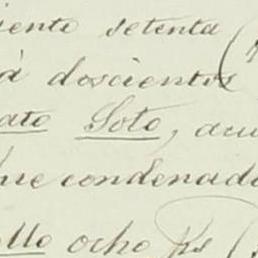 ciento setenta
á doscientos
ato Soto, acu
que condenado
ollo ocho Ks (